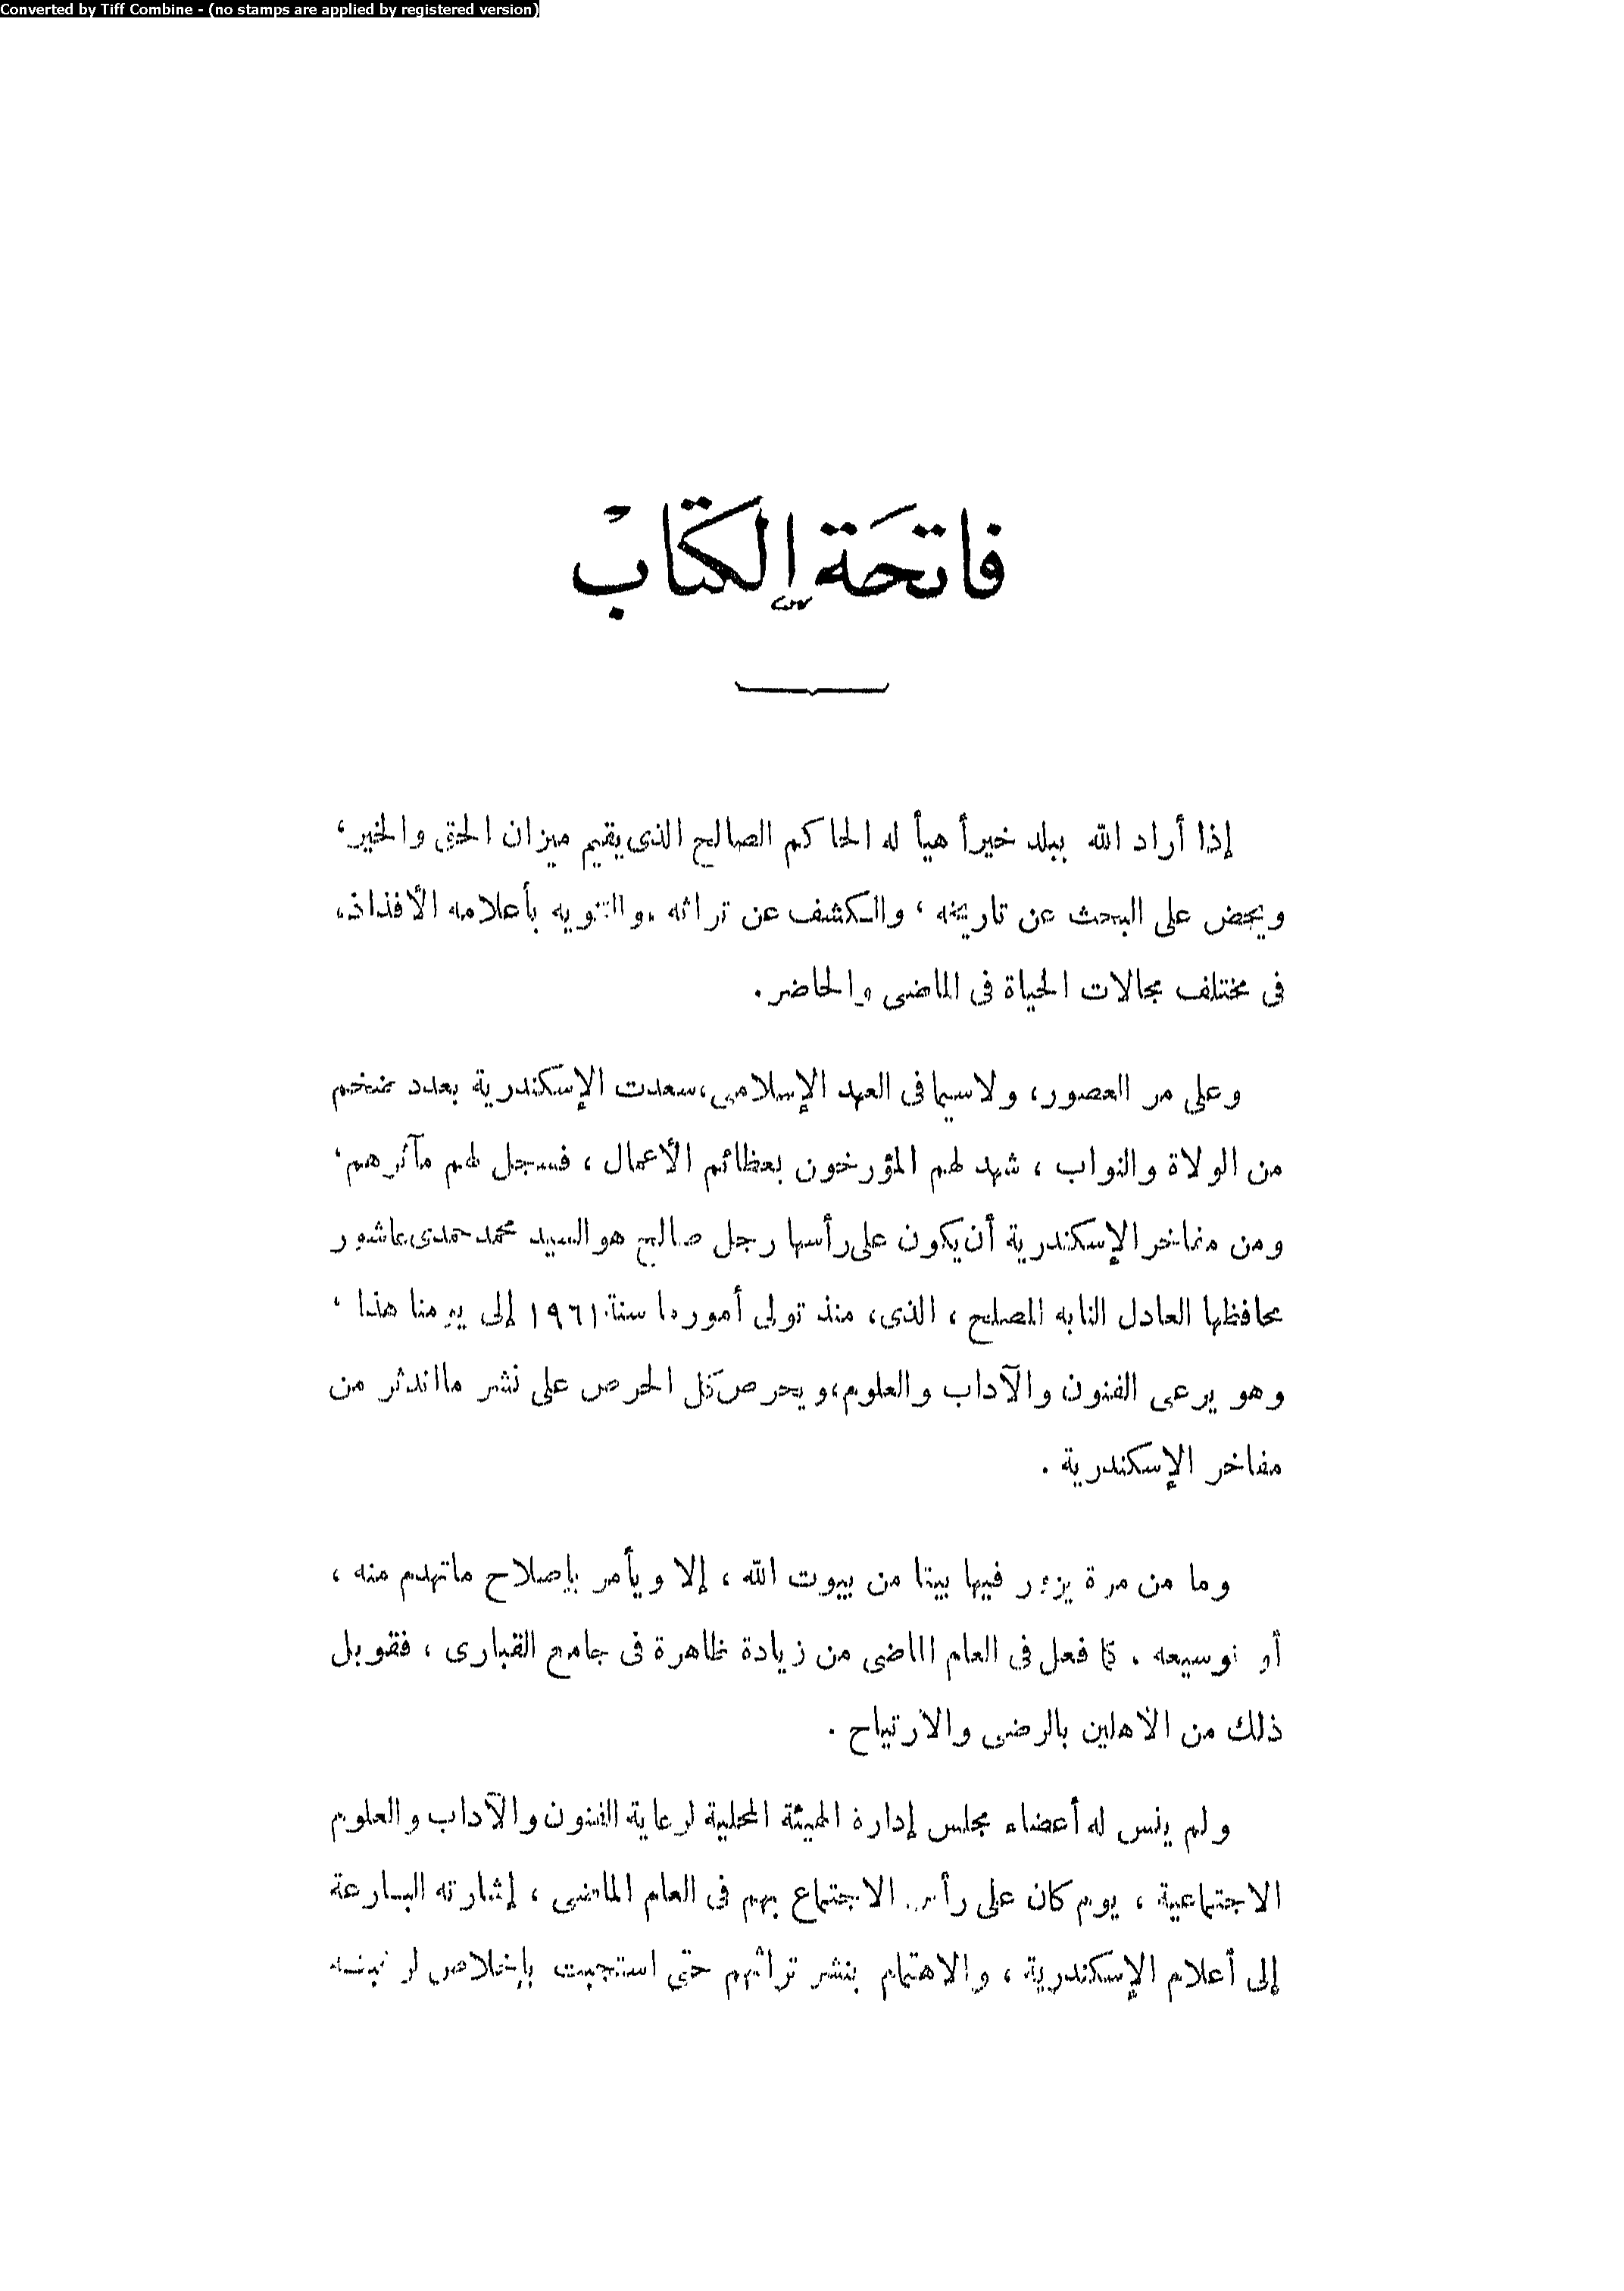 Converted by Tiff Combine - (no stamps are applied by registered version)
فاتحة الكتاب
إذا أراد الله ببلد خيراً هيأ له الحاكم الصالح الذى يقيم ميزان الحق والخير،
ويحض على البحث عن تاريخه ، والكشف عن تراثه ، والتنويه بأعلامه الأفذاذ،
فى مختلف مجالات الحياة فى الماضى والحاضر .
وعلى مر العصور، ولاسيما فى العهد الإسلامى، سعدت الإسكندرية بعدد ضخم
من الولاة والنواب ، شهد لهم المؤرخون بعظائم الأعمال ، فسجل لهم مآثرهم ،
ومن مفاخر الإسكندرية أن يكون على رأسها رجل صالح هو السيد محمد حمدى عاشور
محافظها العادل النابه المصلح ، الذى، منذ تولى أمورها سنة ١٩٦١ إلى يومنا هذا ،
وهو يرعى الفنون والآداب والعلوم، ويحرص كل الحرص على نشر ما اندثر من
مفاخر الإسكندرية .
وما من مرة يزور فيها بيتا من بيوت الله ، إلا ويأمر بإصلاح ماتهدم منه ،
أو توسيعه . كما فعل فى العام الماضى من زيادة ظاهرة فى جامع القبارى ، فقوبل
ذلك من الأهلين بالرضى والارتياح .
ولم ينس له أعضاء مجلس إدارة الهيئة المحلية لرعاية الفنون والآداب والعلوم
الاجتماعية ، يوم كان على رأس الاجتماع بهم فى العام الماضى ، إشارته البارعة
إلى أعلام الإسكندرية ، والاهتمام بنشر تراثهم حتى استجبت بإخلاص لرغبته